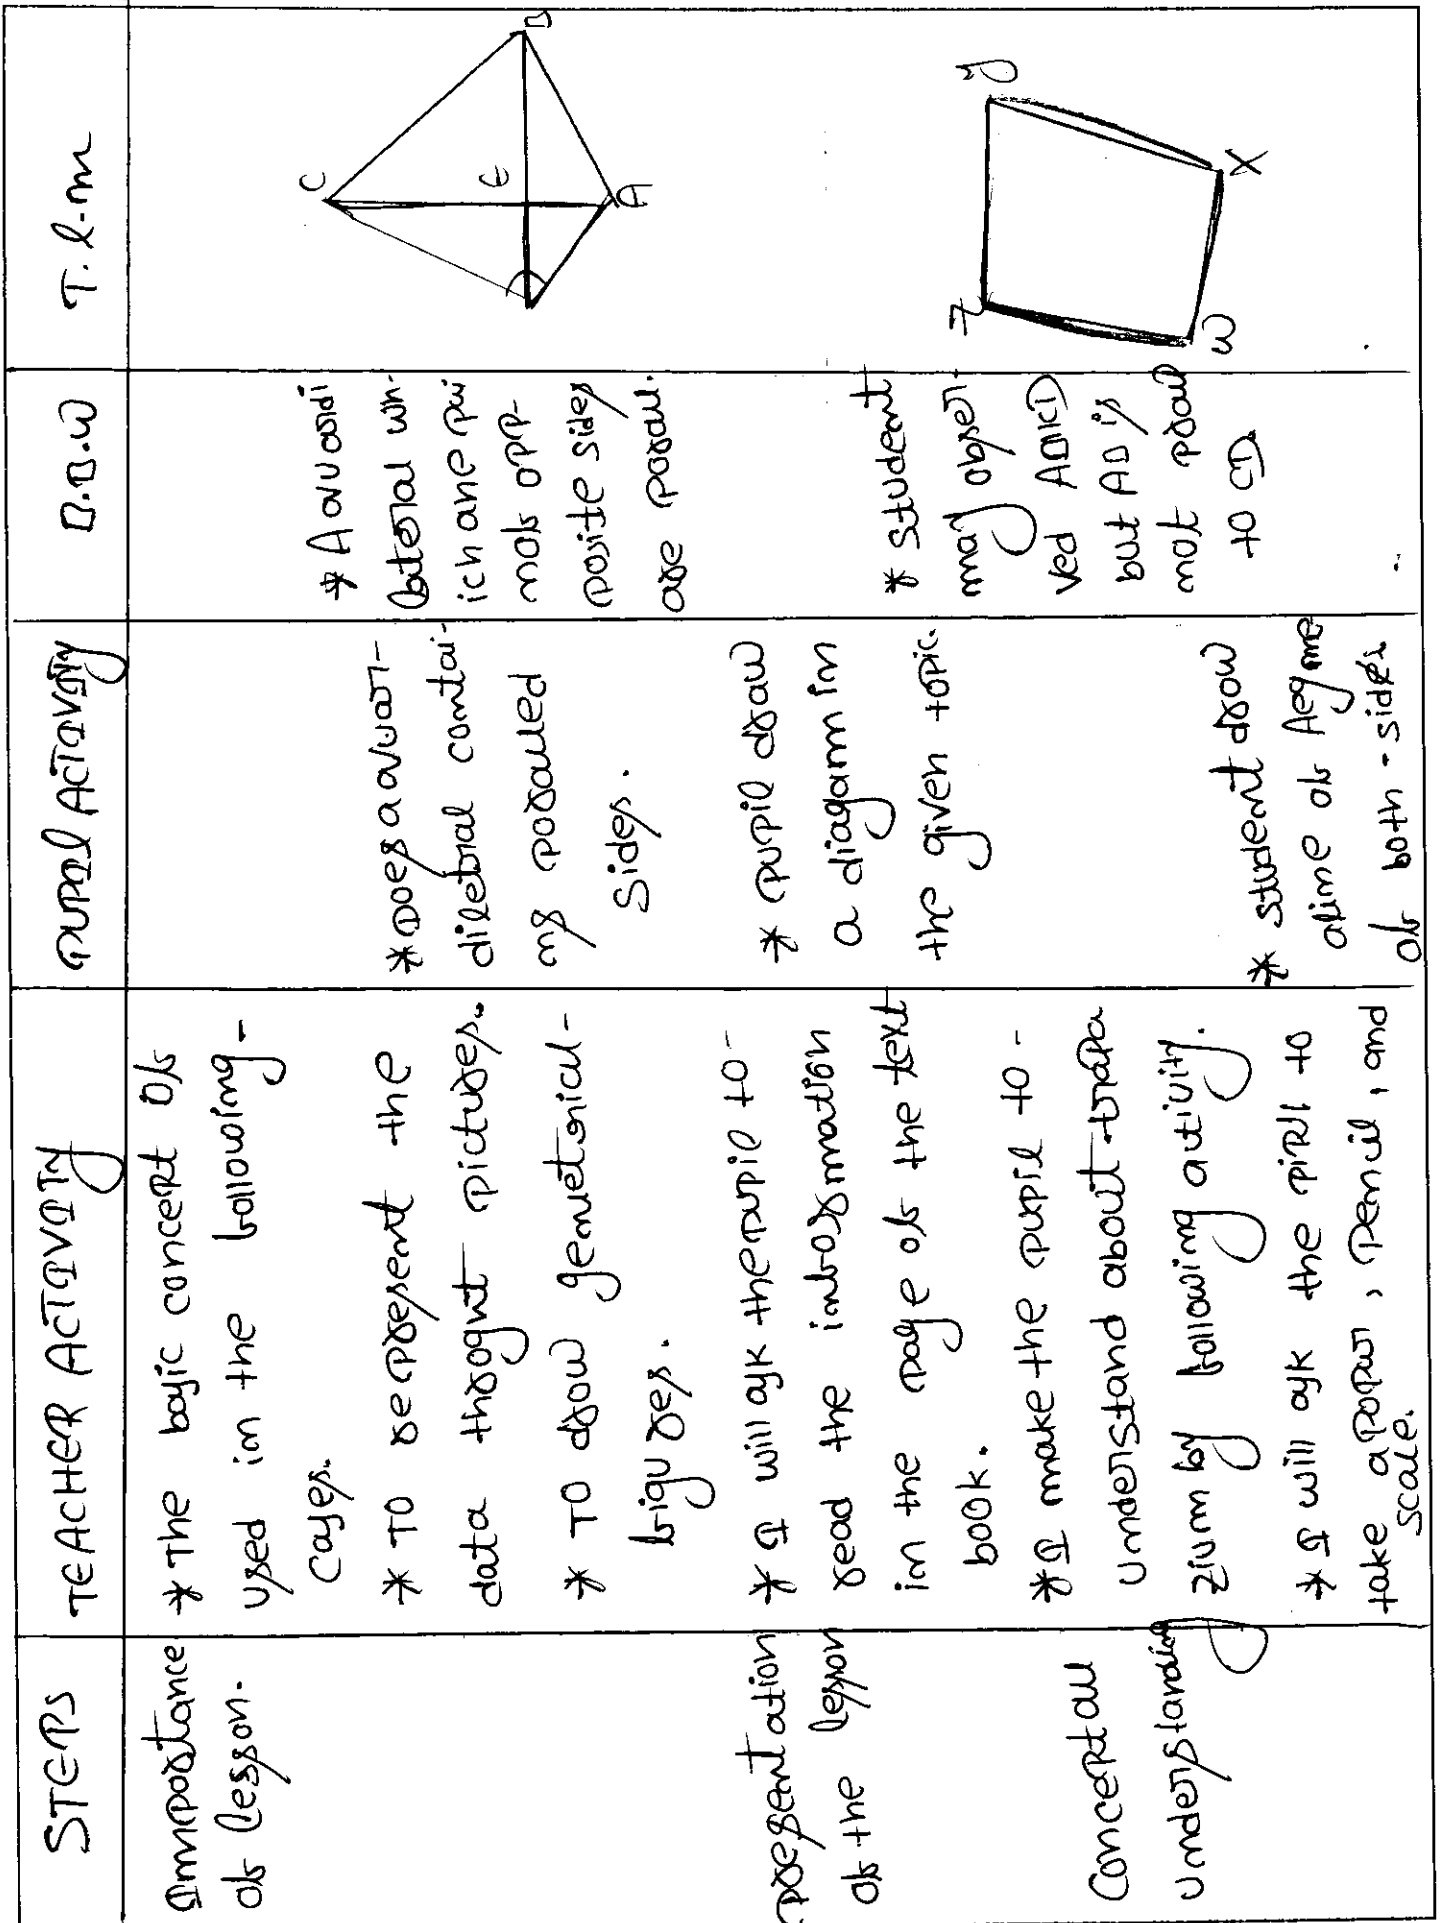 STEPS
TEACHER ACTIVITY
PUPIL ACTIVITY
B.B.W
T.l.m
Importance
of lesson.
* The basic concept of
used in the following-
cases.
* To represent the
data thrognt pictures.
* To draw gemetrical-
figures.
* Does a avuari-
diletral contai-
ng paralled
Sides.
* A avuaridi
lateral wh-
ich one pai
not opp-
posite sides
are parall.
C
B
E
A
presentation
of the lesson
* I will ask the pupil to-
read the information
in the page of the text
book.
* pupil draw
a diagarm in
the given topic.
* student
may obser
ved
but AD is
not parall
to CD.
Z
y
W
X
Conceptall
understanding
* I make the pupil to-
understand about trapa
zium by following activity.
* I will ask the pipil to
take a paper, pencil, and
scale.
* student draw
aline of Aegme
of both-sides.